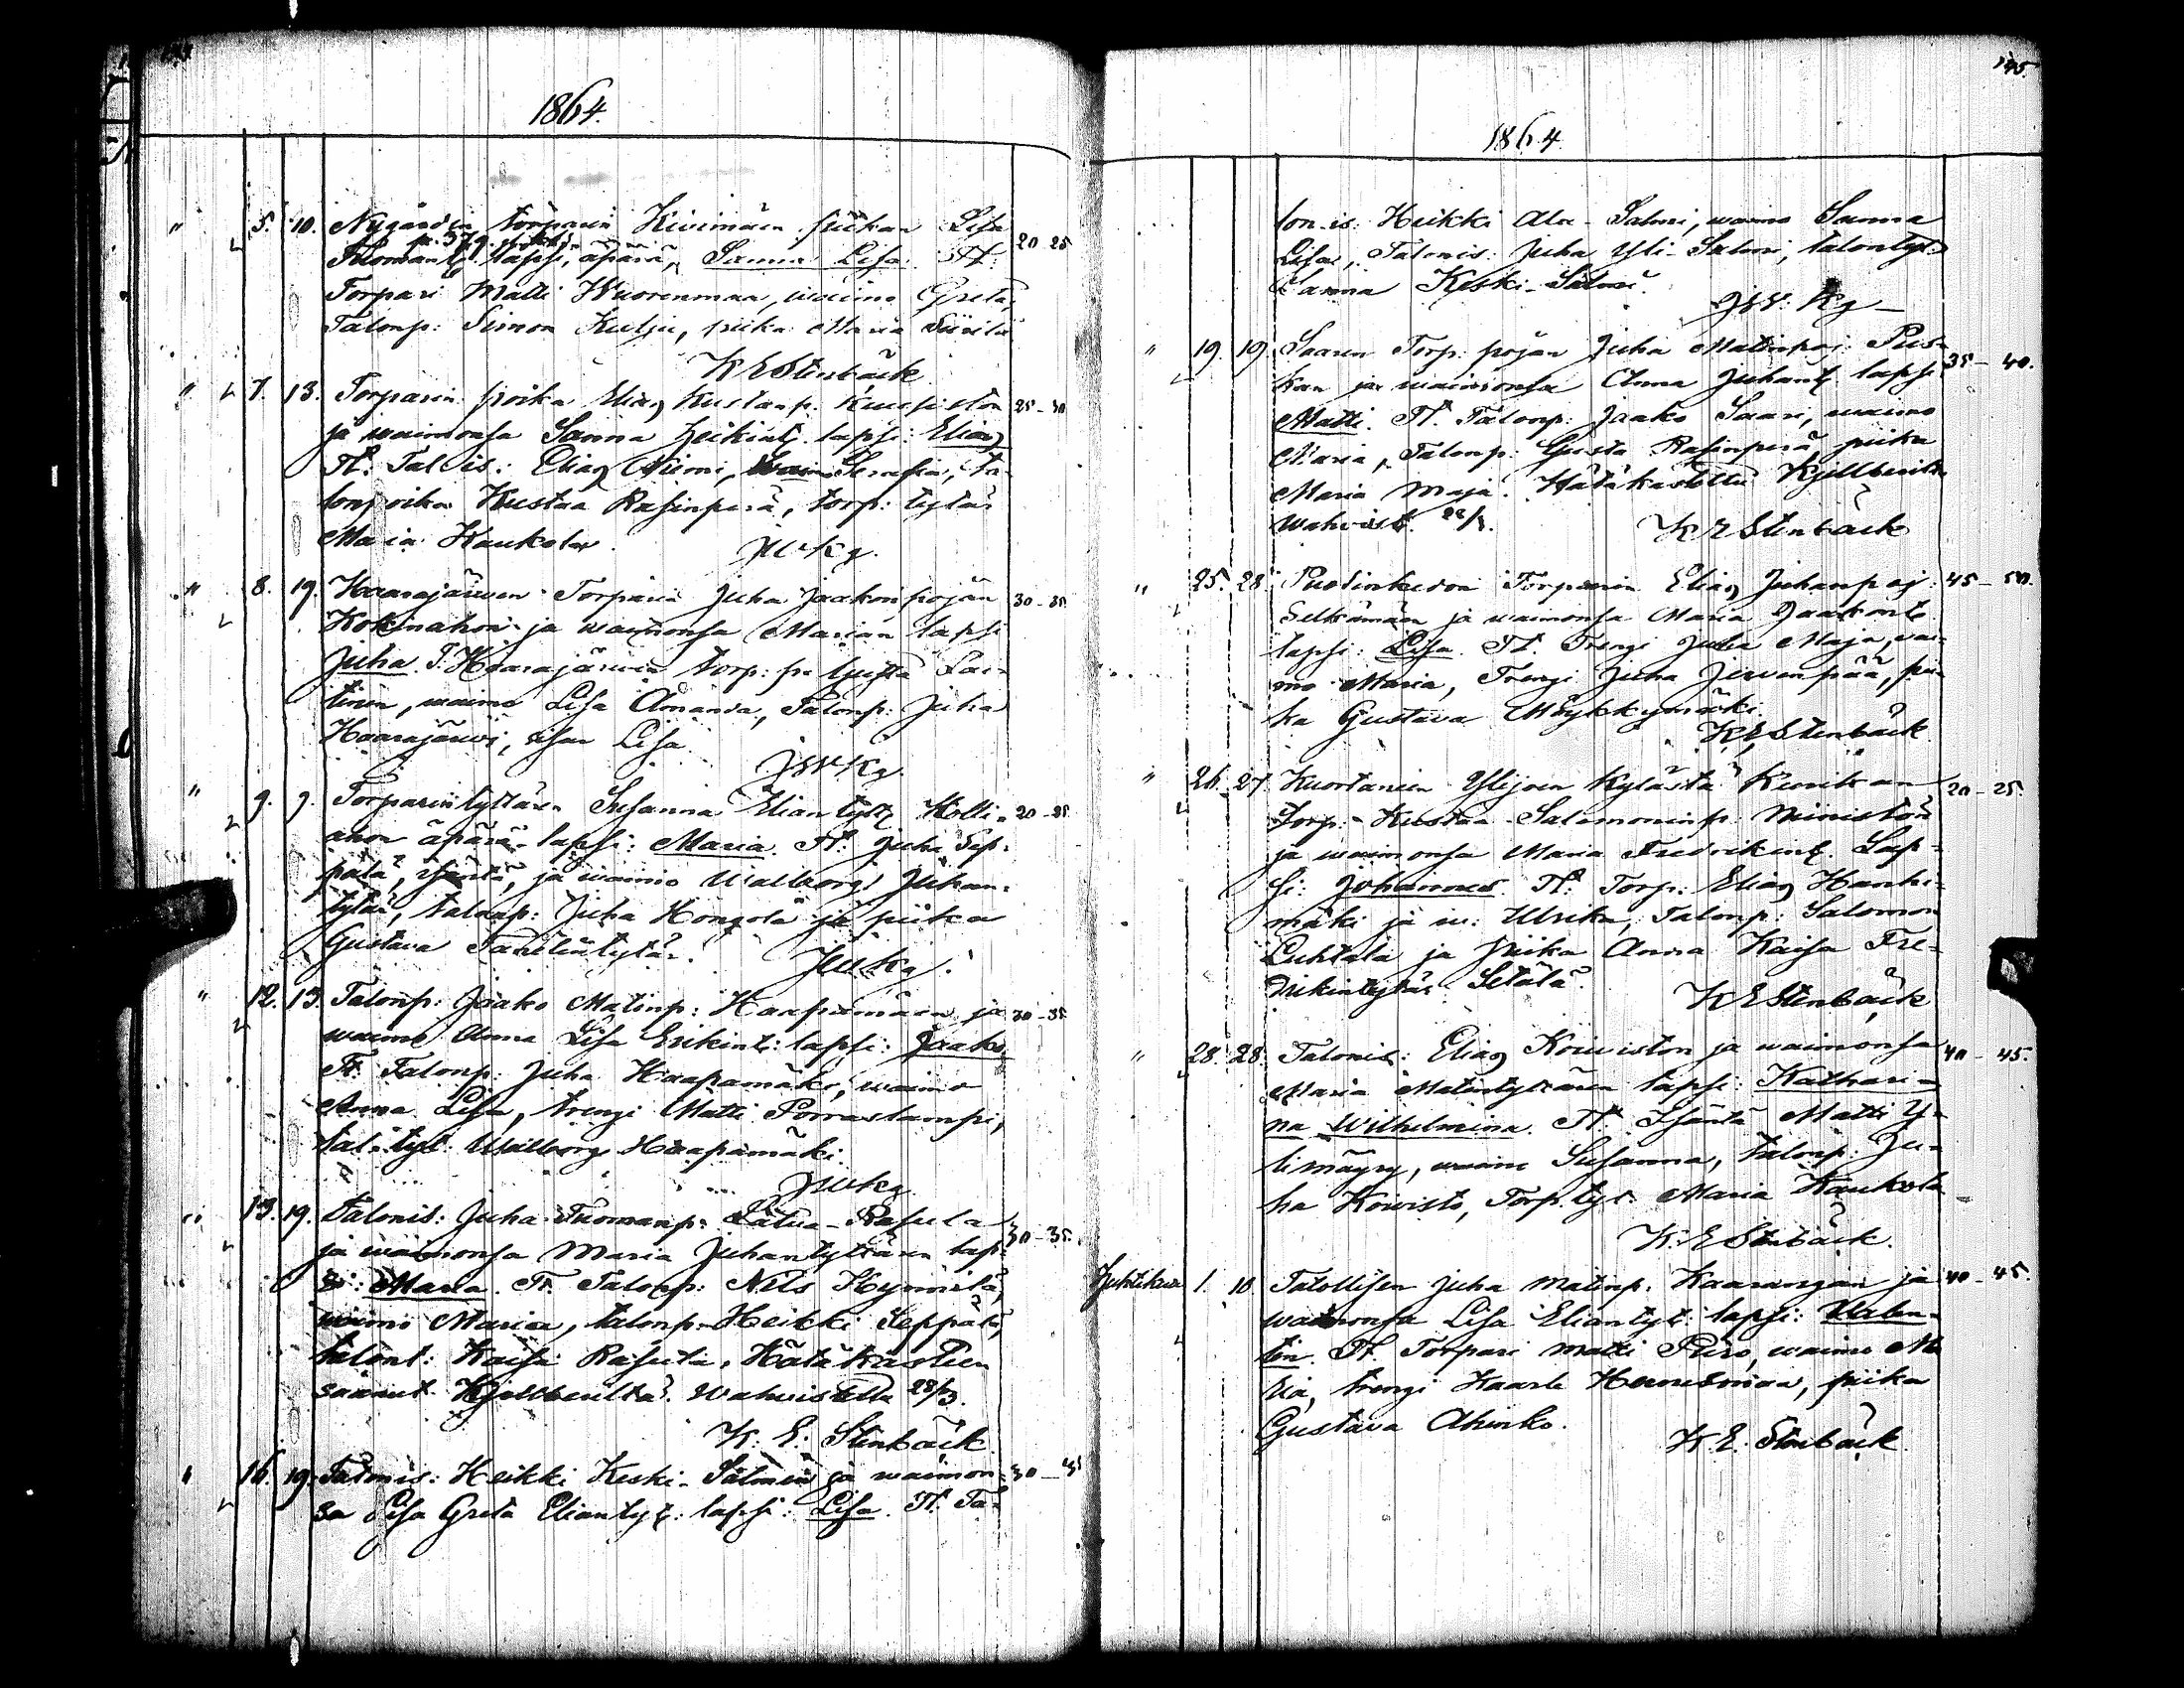 1864.
" 5. 10. Nygårdin torparin Kivimäen piikan Lisa 20-25
Tuomant: lapsi, äpärä, Sanna Lisa. Tt:
Torpari Matti Wuorenmaa, waimo Greta,
Talonp: Simon Kulju, piika Maria
K E Stenbäck
" 7. 13. Torparin poika Elias Kustanp. Kuusiston 25-30
ja waimonsa Sanna Heikint: lapsi: Elias
Tt: Talois: Elias Niemi, Serafia, ta-
lonpoika Kustaa Rasinperä, torp: tytär
Maria Kaukola.
JWKg.
" 8. 19. Haarajärwen Torparin Juha Jaakonpojan 30-35
Kokinahon ja waimonsa Marian lapsi
Juha. T: Haarajärwen torp: po: Gusta Lai-
tinen, waimo Lisa Amanda, Talonp: Juha
Haarajärwi, sisar Lisa.
JWKg.
" 9. 9. Torparintyttären Susanna Eliantytt: Kotti- 20-25
ahon äpärä-lapsi: Maria. Tt: Juha Sep-
pälä, isäntä, ja waimo Walborg Juhan-
tytär, talonp: Juha Hongola ja piika
Gustava Tanelintytär.
JWKg.
" 12. 13. Talonp: Jaako Matinp: Haapamäen ja 30-35
waimo Anna Lisa Erikint: lapsi: Jaako
Tt. Talonp: Juha Haapamäki, waimo
Anna Lisa, trengi Matti Porraslampi,
tal: tyt: Walborg Haapamäki.
JWKg.
" 13. 19. Talonis: Juha Tuomanp: Latva-Rasula 30-35.
ja waimonsa Maria Juhantyttären lap-
si: Maria. Tt. Talonp: Nils Hynnilä,
waimo Maria, talonp: Heikki Seppälä,
talont: Kaisa Rasula. Hätäkasteen
saanut Kjellberiltä. Wahwistettu 28/3.
K. E. Stenbäck.
" 16. 19. Talonis: Heikki Keski-Salmen ja waimon- 30-35
sa Lisa Greta Eliantyt: lapsi: Lisa. Tt. Ta-
145.
1864.
lon-is: Heikki Ala-Salmi, waimo Sanna
Lisa, Talonis: Juha Yli-Salmi, talontyt:
Sanna Keski-Salmi.
JW: Kg
" 19. 19. Saaren Torp: pojan Juha Matinpoj: Pus- 35-40.
kan ja waimonsa Anna Juhant: lapsi
Matti. Tt. Talonp: Jaako Saari, waimo
Maria, Talonp: Gusta Rasinperä, piika
Maria Maja. Hätäkastettu Kjellberiltä
wahwist. 28/3.
K E Stenbäck
" 25. 28. Puodinkedon Torparin Elias Juhanpoj: 45-50.
Selkämäen ja waimonsa Maria Jaakont:
lapsi: Lisa. Tt. Trengi Juha Maja, wai-
mo Maria, Trengi Juha Jerwenpää, pii-
ka Gustava Möykkymäki.
K E Stenbäck
" 26. 27. Kuortaneen Ylijoen kylästä Kunikan 20-25.
Torp: Kustaa Salomoninp: Ministon
ja waimonsa Maria Fredrikint. Lap-
si: Johannes. Tt: Torp: Elias Hanhi-
mäki ja w: Ulrika, Talonp: Salomon
Luhtala ja Piika Anna Kaisa Fre-
drikintytär Setälä.
K E Stenbäck
" 28. 28. Talonis: Elias Koiwiston ja waimonsa 40-45.
Maria Matintyttären lapsi: Kathari-
na Wilhelmina. Tt. Isäntä Matti Y-
limäyry, waimo Susanna, talonp: Ju-
ha Koiwisto, Torp. tyt: Maria Kaukola
K. E Stenbäck.
Huhtikuu 1. 10. Talollisen Juha Matinp. Kaarangan ja 40-45.
waimonsa Lisa Eliantyt: lapsi: Valen-
tin. Tt. Torpari Matti Piiro, waimo Ma
ria, trengi Kaarle, piika
Gustava Ahinko.
K. E. Stenbäck.